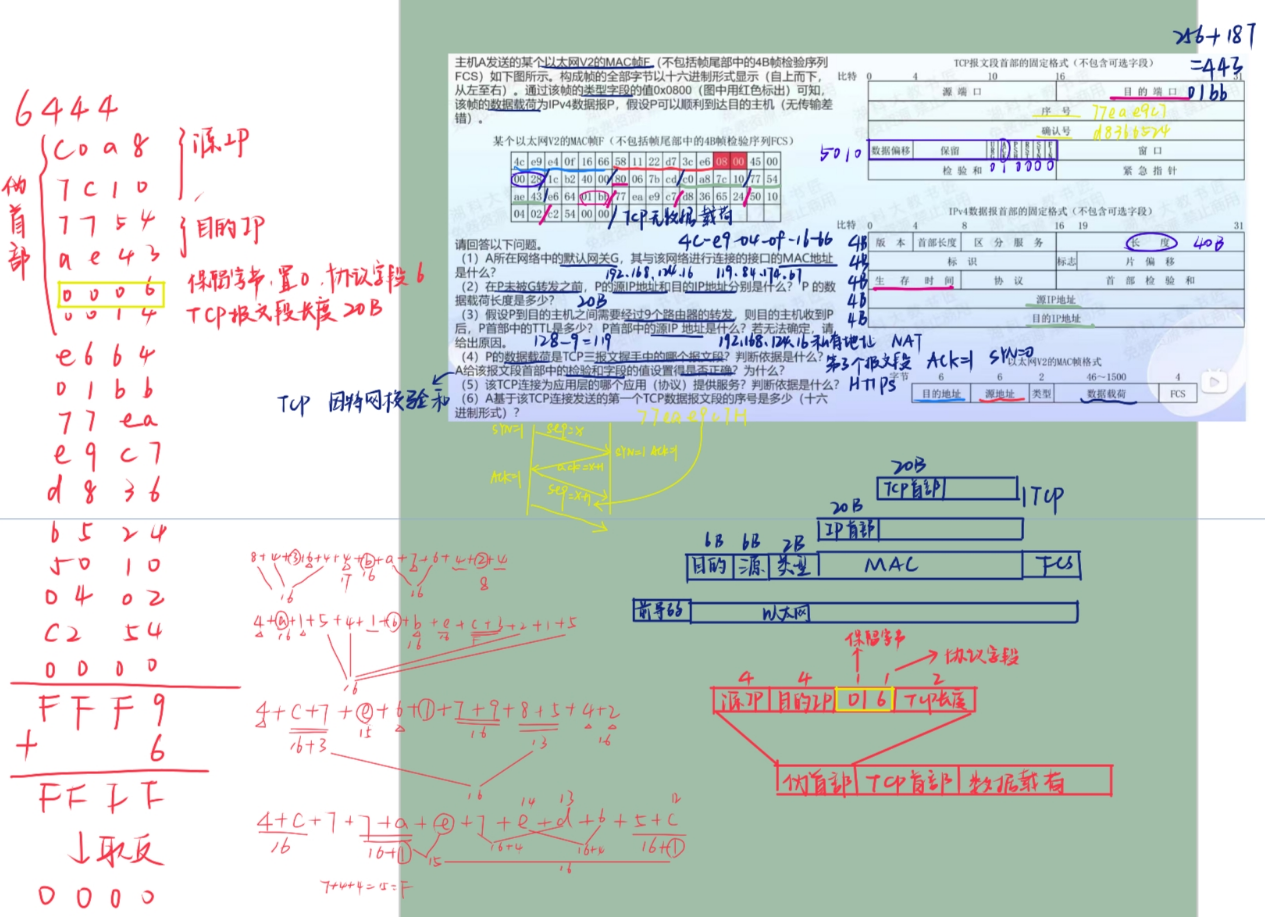 256+187
=443
主机A发送的某个以太网V2的MAC帧F(不包括帧尾部中的4B帧检验序列
FCS)如下图所示。构成帧的全部字节以十六进制形式显示(自上而下,
从左至右)。通过该帧的类型字段的值0x0800(图中用红色标出)可知,
该帧的数据载荷为IPv4数据报P,假设P可以顺利到达目的主机(无传输差
错)。
某个以太网V2的MAC帧F(不包括帧尾部中的4B帧检验序列FCS)
4c e9 e4 0f 16 66 58 11 22 d7 3c e6 08 00 45 00
00 28 1c b2 40 00 80 06 7b cd c0 a8 7c 10 77 54
ae 43 e6 64 01 bb 77 ea e9 c7 d8 36 65 24 50 10
04 02 c2 54 00 00
TCP无数据载荷
请回答以下问题。
4C-e9-04-0f-16-66
(1)A所在网络中的默认网关G,其与该网络进行连接的接口的MAC地址
是什么?
192.168.124.16 119.84.174.67
(2)在P未被G转发之前,P的源IP地址和目的IP地址分别是什么?P 的数
据载荷长度是多少?
20B
(3)假设P到目的主机之间需要经过9个路由器的转发,则目的主机收到P
后,P首部中的TTL是多少?P首部中的源IP 地址是什么?若无法确定,请
给出原因。
128-9=119 192.168.124.16 私有地址 NAT
(4)P的数据载荷是TCP三报文握手中的哪个报文段?判断依据是什么?
第3个报文段 ACK=1 SYN=0
A给该报文段首部中的检验和字段的值设置得是否正确?为什么?
TCP 因特网校验和
(5)该TCP连接为应用层的哪个应用(协议)提供服务?判断依据是什么?
HTTPs
(6)A基于该TCP连接发送的第一个TCP数据报文段的序号是多少(十六
进制形式)?
TCP报文段首部的固定格式(不包含可选字段)
比特 0 4 10 16 31
源 端 口 目 的 端 口 01bb
序 号 77eae9c7
确认号 d8366524
5010 数据偏移 保留 窗 口
检 验 和 010000 紧 急 指 针
IPv4数据报首部的固定格式(不包含可选字段)
比特 0 4 8 16 19 31
4B 版 本 首部长度 区 分 服 务 长 度 40B
4B 标 识 标志 片 偏 移
4B 生 存 时 间 协 议 首 部 检 验 和
4B 源IP地址
4B 目的IP地址
以太网V2的MAC帧格式
字节 6 6 2 46~1500 4
目的地址 源地址 类型 数据载荷 FCS
6444
伪首部
C0a8
7C10
源IP
7754
ae43
目的IP
0006
保留字节,置0,协议字段6
0014
TCP报文段长度20B
e664
01bb
77ea
e9c7
d836
6524
5010
0402
C254
0000
FFF9
+ 6
FFFF
↓取反
0000
SYN=1 seq=x
SYN=1 ACK=1
ack=x+1
ACK=1
seq=x+1
16
17 16
16
8
16
4+c+7+e+6+1+7+9+8+5+4+2
16+3 15 16 13 16
16
14 13 12
4+c+7+7+a+e+7+e+d+6+5+c
16 16+1 15 16+4 16+4 16+1
16
7+4+4=15=F
20B
TCP首部
TCP
20B
IP首部
6B 6B 2B
目的 源 类型 MAC FCS
前导码 以太网
保留字节
协议字段
4 4 1 1 2
源IP 目的IP 0 6 TCP长度
伪首部 TCP首部 数据载荷